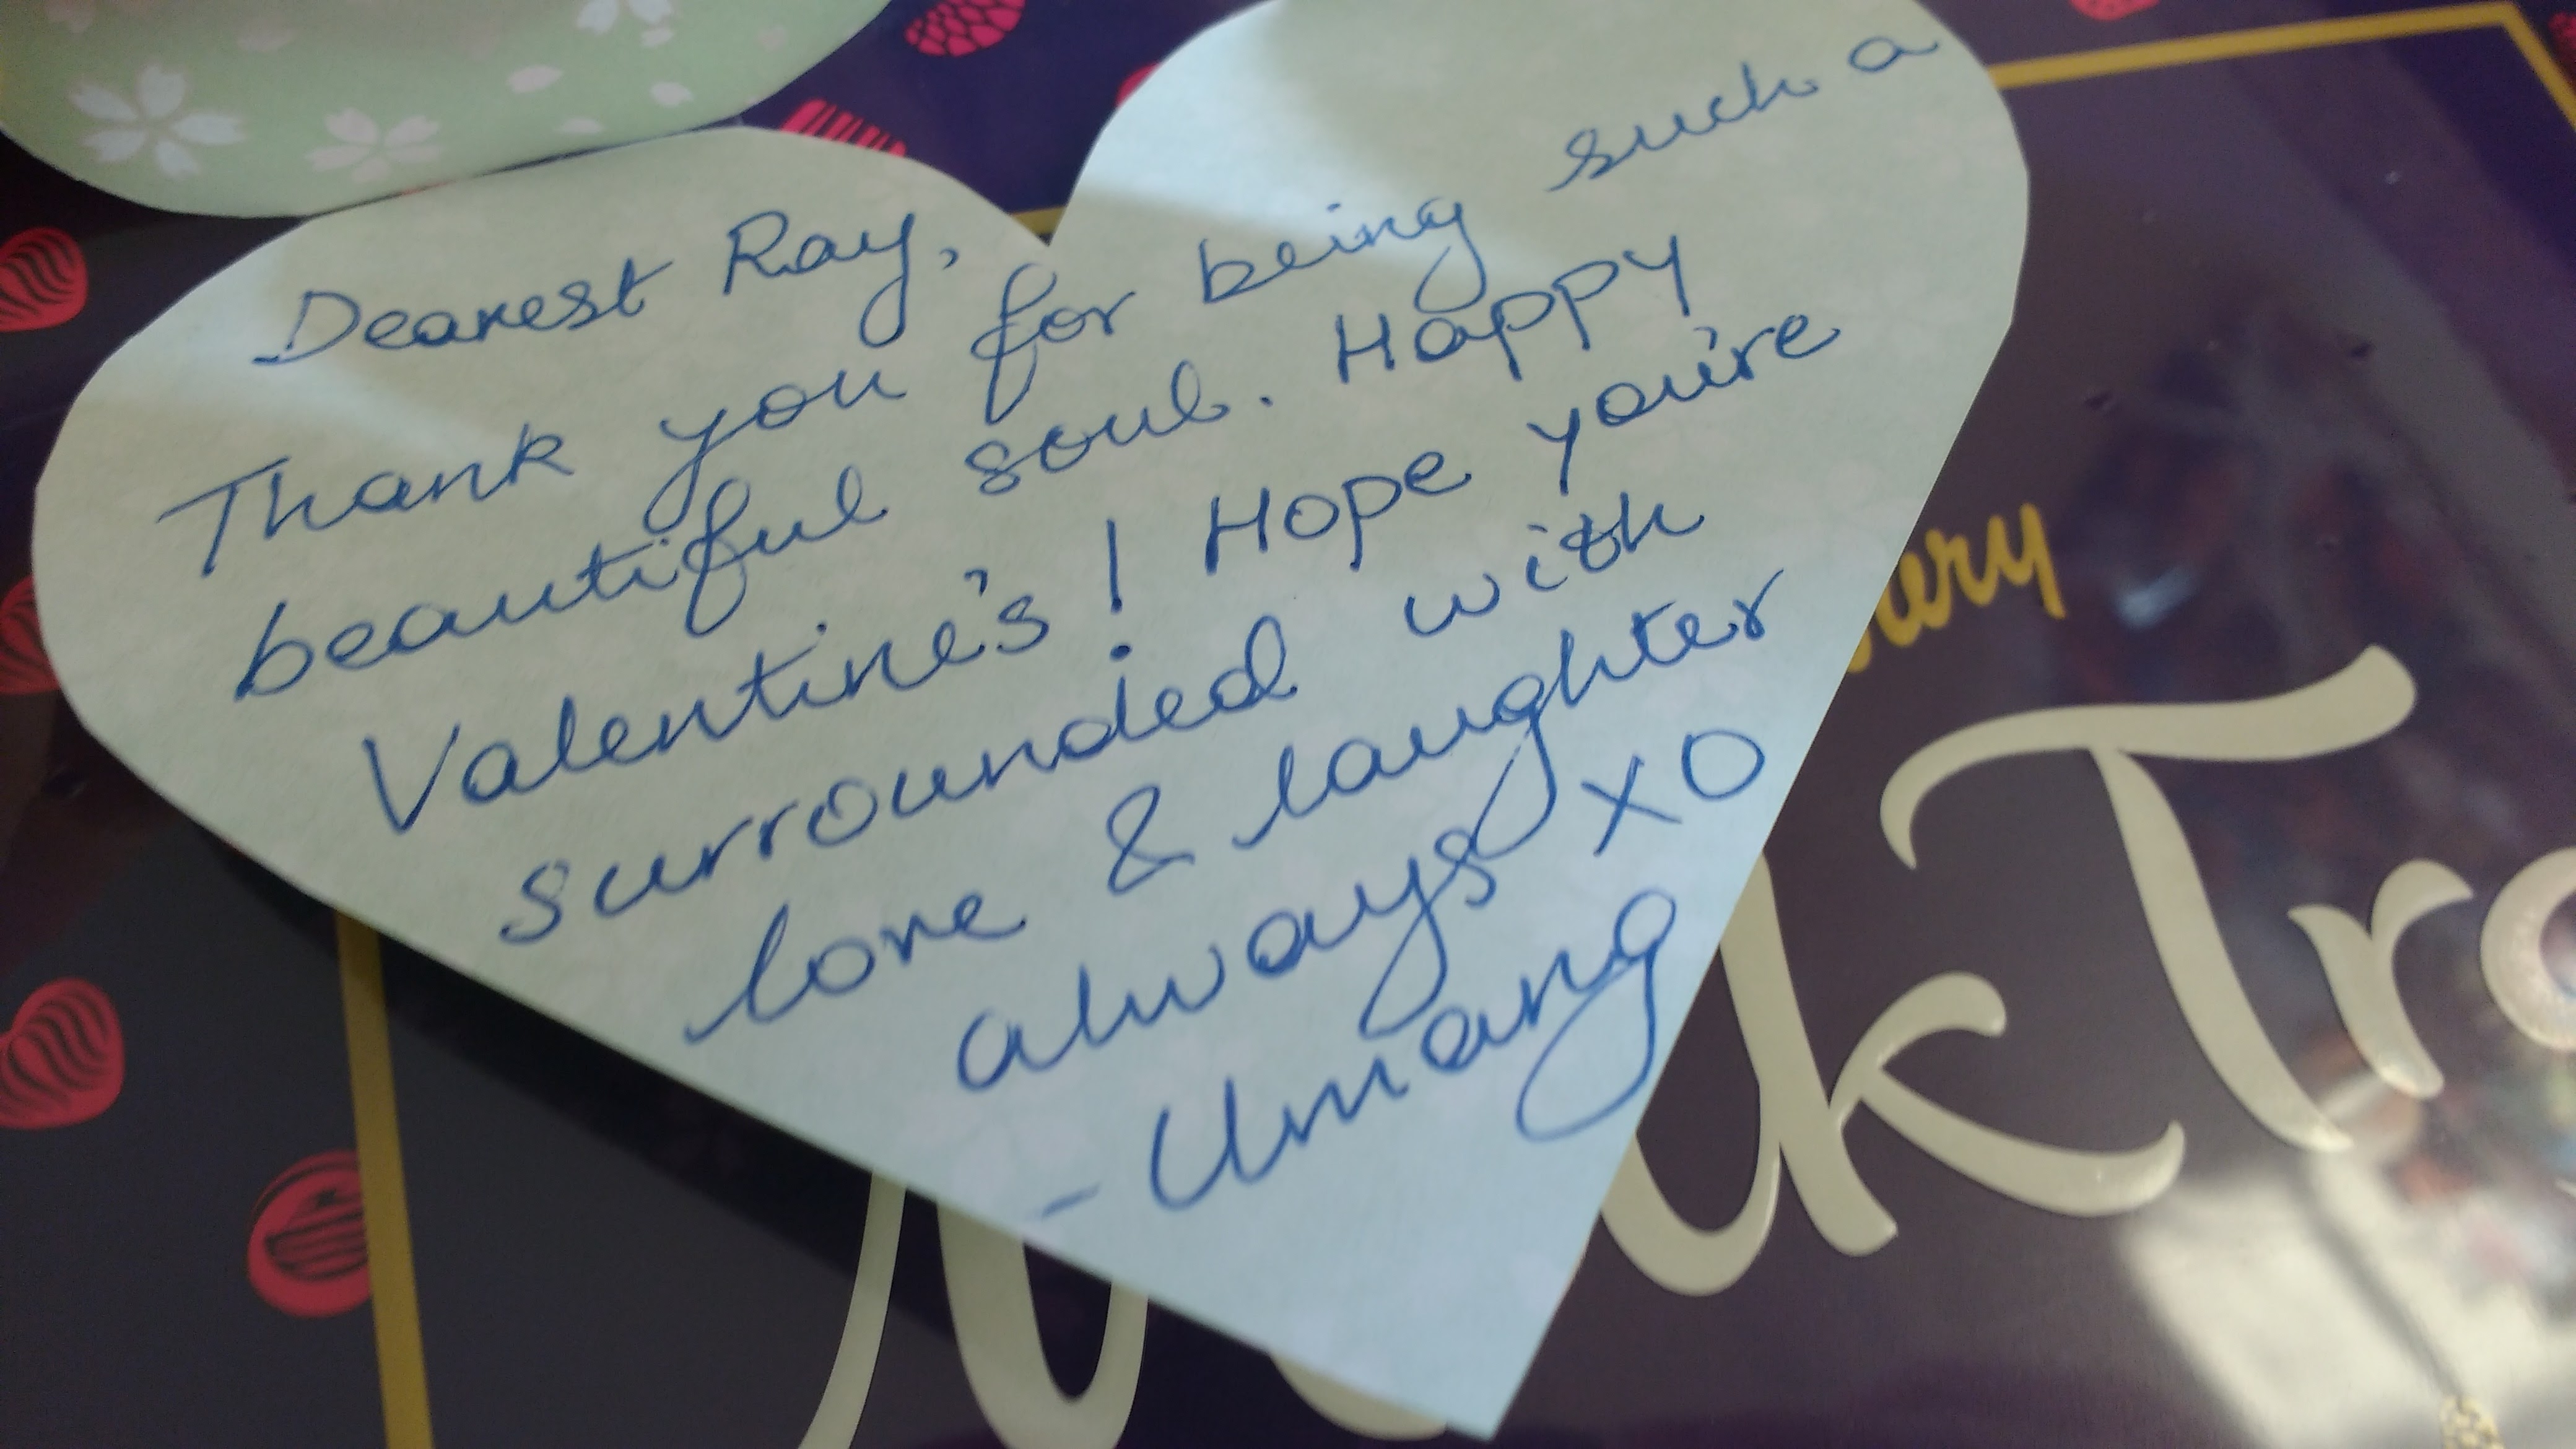 Dearest Ray,
Thank you for being such a
beautiful soul. Happy
Valentine's! Hope you're
surrounded with
love & laughter
always XO
- Umang